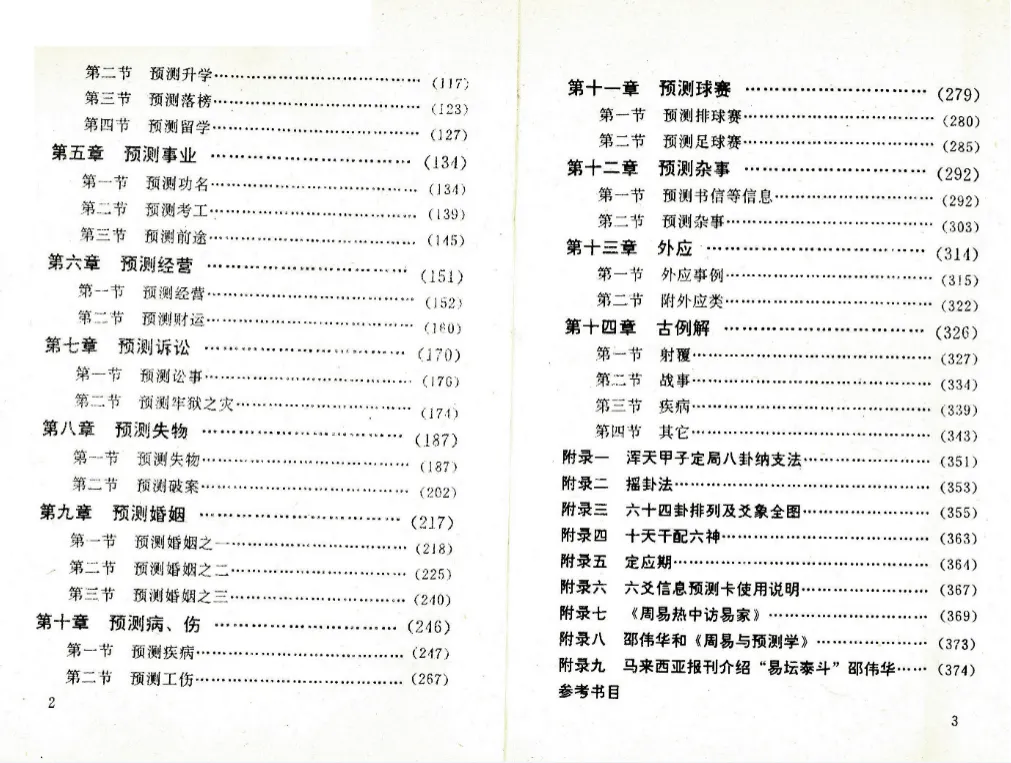 第二节 预测升学……………………………(117)
第三节 预测落榜……………………………(123)
第四节 预测留学……………………………(127)
第五章 预测事业……………………………(134)
第一节 预测功名……………………………(134)
第二节 预测考工……………………………(139)
第三节 预测前途……………………………(145)
第六章 预测经营……………………………(151)
第一节 预测经营……………………………(152)
第二节 预测财运……………………………(160)
第七章 预测诉讼……………………………(170)
第一节 预测讼事……………………………(176)
第二节 预测牢狱之灾………………………(174)
第八章 预测失物……………………………(187)
第一节 预测失物……………………………(187)
第二节 预测破案……………………………(202)
第九章 预测婚姻……………………………(217)
第一节 预测婚姻之一………………………(218)
第二节 预测婚姻之二………………………(225)
第三节 预测婚姻之三………………………(240)
第十章 预测病、伤…………………………(246)
第一节 预测疾病……………………………(247)
第二节 预测工伤……………………………(267)
2
第十一章 预测球赛…………………………(279)
第一节 预测排球赛…………………………(280)
第二节 预测足球赛…………………………(285)
第十二章 预测杂事…………………………(292)
第一节 预测书信等信息……………………(292)
第二节 预测杂事……………………………(303)
第十三章 外应………………………………(314)
第一节 外应事例……………………………(315)
第二节 附外应类……………………………(322)
第十四章 古例解……………………………(326)
第一节 射覆…………………………………(327)
第二节 战事…………………………………(334)
第三节 疾病…………………………………(339)
第四节 其它…………………………………(343)
附录一 浑天甲子定局八卦纳支法…………(351)
附录二 摇卦法………………………………(353)
附录三 六十四卦排列及爻象全图…………(355)
附录四 十天干配六神………………………(363)
附录五 定应期………………………………(364)
附录六 六爻信息预测卡使用说明…………(367)
附录七 《周易热中访易家》………………(369)
附录八 邵伟华和《周易与预测学》………(373)
附录九 马来西亚报刊介绍“易坛泰斗”邵伟华……(374)
参考书目
3